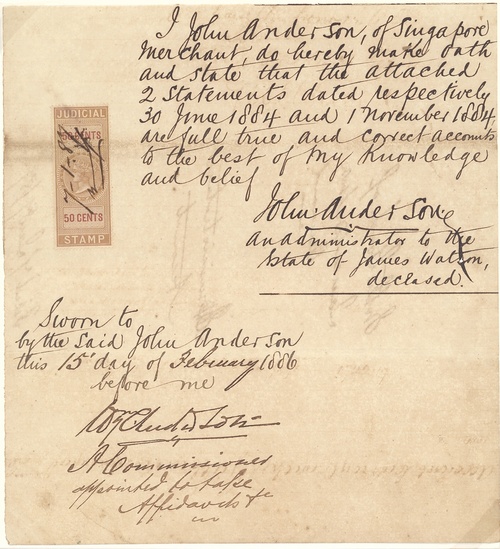 I John Anderson, of Singapore
Merchant, do hereby make Oath
and state that the attached
2 Statements dated respectively
30 June 1884 and 1 November 1884,
are full true and correct accounts
to the best of my Knowledge
and belief
JUDICIAL
50 CENTS
50 CENTS
STAMP
John Anderson
An administrator to the
Estate of James Watson,
deceased.
Sworn to
by the said John Anderson
this 15 day of February 1886
before me
A Commissioner
appointed to take
Affidavits &c